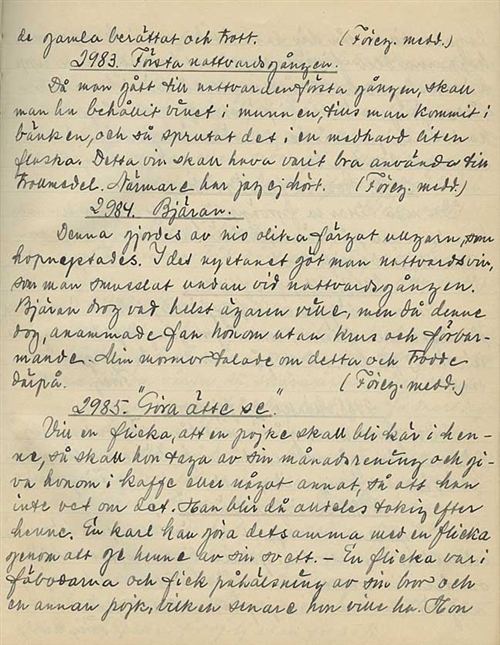 de gamla berättat och trott. (Föreg. medd.)
2983. Första nattvardsgången.
Då man gått till nattvarden första gången, skall
man ha behållit vinet i munnen, tills man kommit i
bänken, och så sprutat det i en medhavd liten
flaska. Detta vin skall hava varit bra använda till
trollmedel. Närmare har jag ej hört. (Föreg. medd.)
2984. Bjäran.
Denna gjordes av nio olika färgat ullgarn, som
hopnystades. I det nystanet göt man nattvardsvin,
som man smusslat undan vid nattvardsgången.
Bjäran drog vad helst ägaren ville, men då denne
dog, anammade fan honom utan krus och förbar-
mande. Min mormor talade om detta och trodde
därpå. (Föreg. medd.)
2985. "Göra åtte se."
Vill en flicka, att en pojke skall bli kär i hen-
ne, så skall hon taga av sin månadsrening och gi-
va honom i kaffe eller något annat, så att han
inte vet om det. Han blir då alldeles tokig efter
henne. En karl kan göra detsamma med en flicka
genom att ge henne av sin svett. - En flicka var i
fäbodarna och fick påhälsning av sin bror och
en annan pojk, vilken senare hon ville ha. Hon